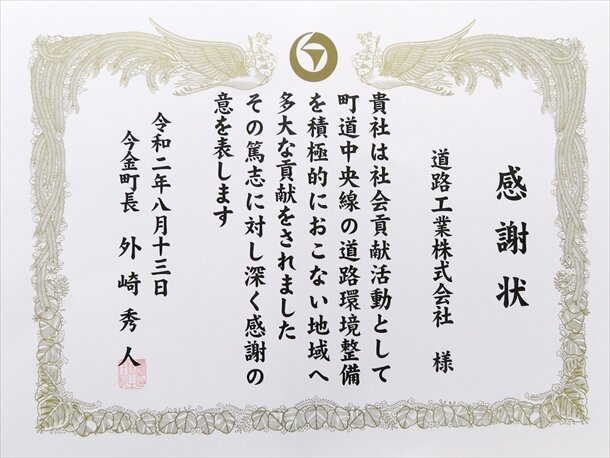 感謝状
道路工業株式会社 様
貴社は社会貢献活動として
町道中央線の道路環境整備
を積極的におこない地域へ
多大な貢献をされました
その篤志に対し深く感謝の
意を表します
令和二年八月十三日
今金町長 外崎秀人